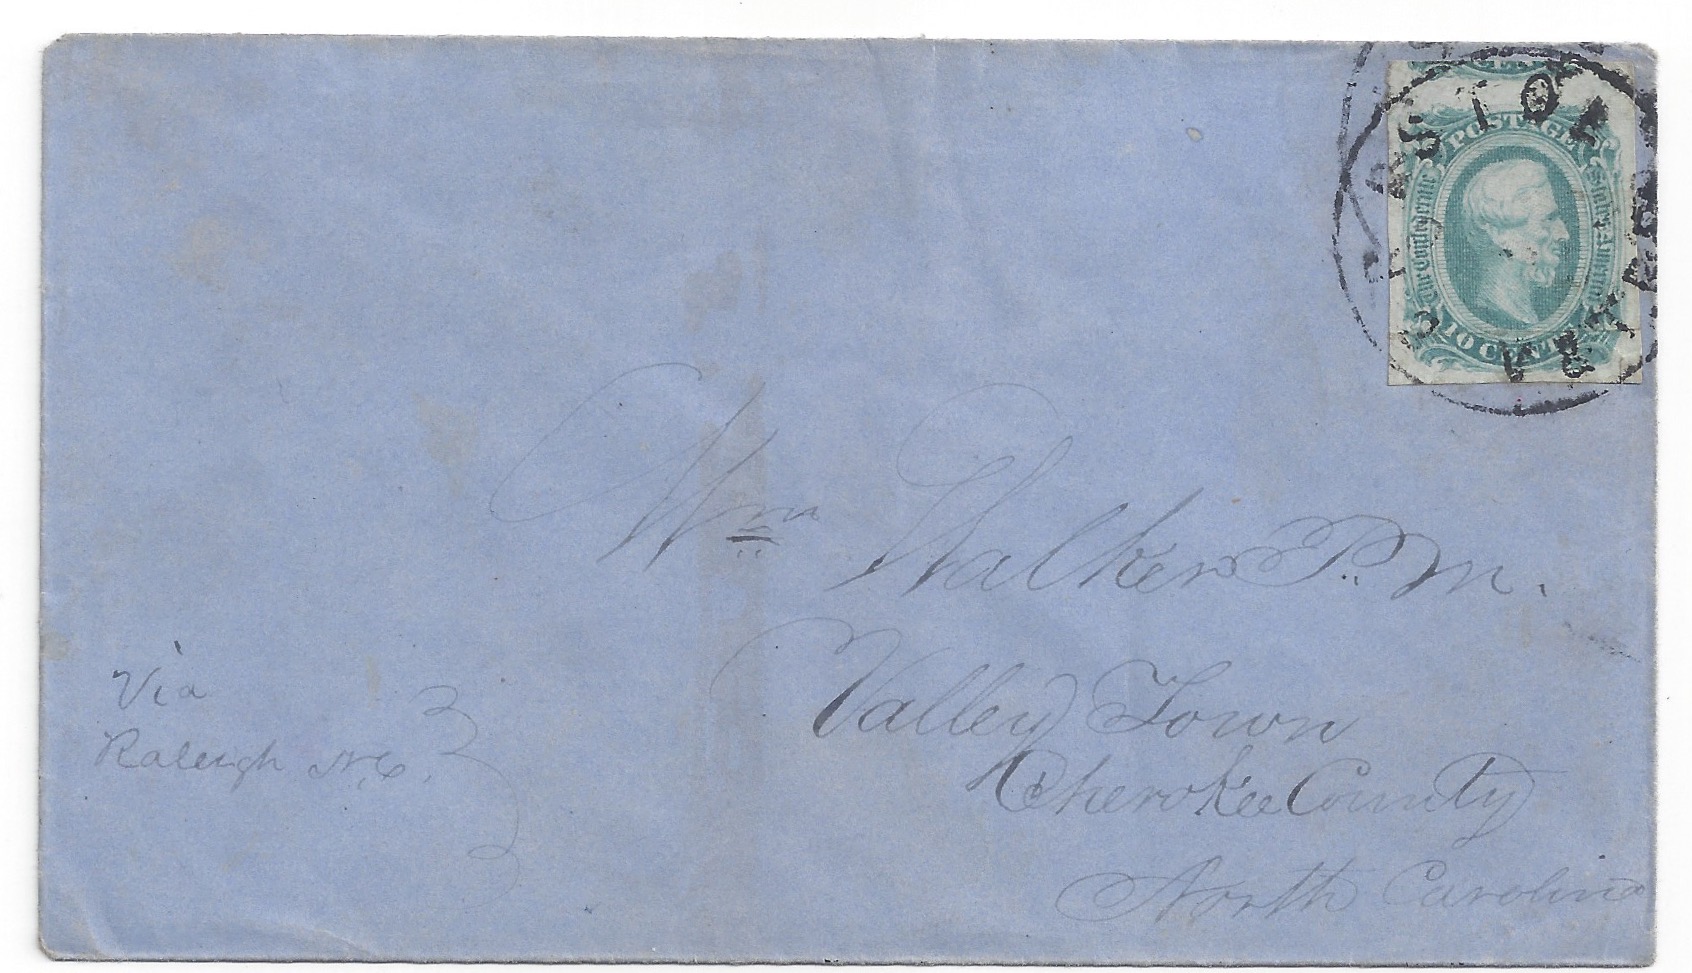 POSTAGE
The Confederate States of America
10 CENTS
Wm Walker P.M.
Valley Town
Cherokee County
North Carolina
Via
Raleigh N.C.